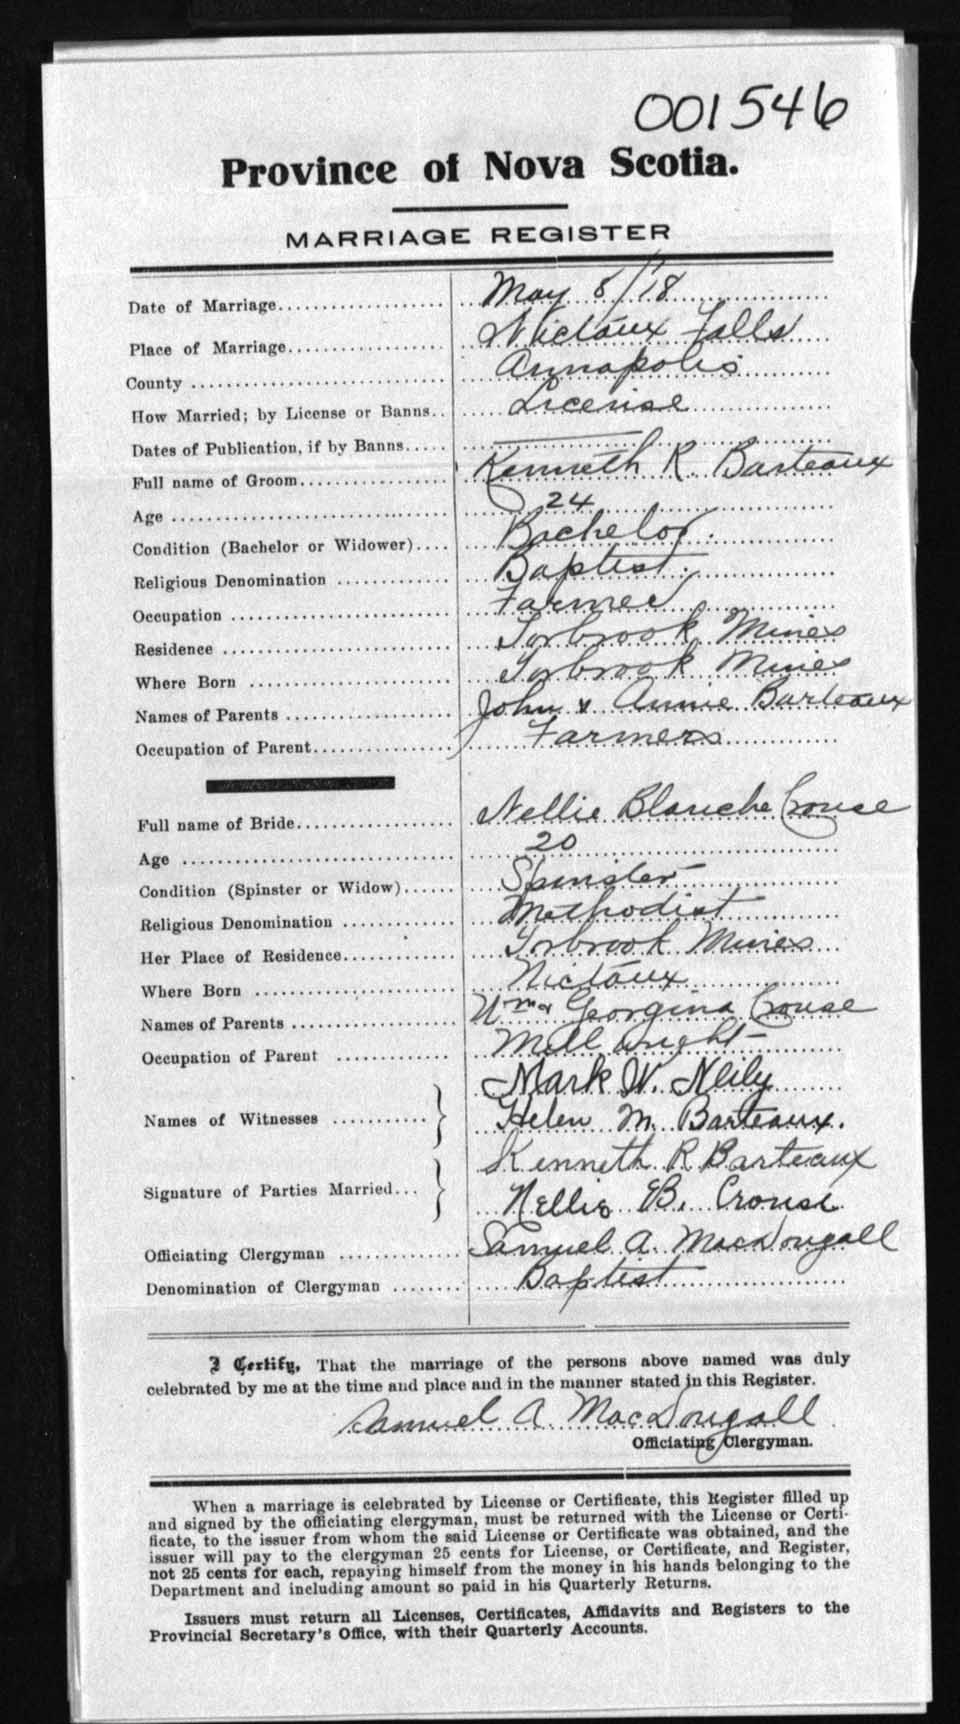 001546
Province of Nova Scotia.
MARRIAGE REGISTER
Date of Marriage.................. May 8/18
Place of Marriage.................. Nictaux Falls
County .................. Annapolis
How Married; by License or Banns.. License
Dates of Publication, if by Banns..... ———
Full name of Groom.................. Kenneth R. Barteaux
Age .................. 24
Condition (Bachelor or Widower).... Bachelor.
Religious Denomination ............ Baptist.
Occupation .................. Farmer
Residence .................. Torbrook Mines
Where Born .................. Torbrook Mines
Names of Parents .................. John & Annie Barteaux
Occupation of Parent.................. Farmers
Full name of Bride.................. Nellie Blanche Crouse
Age .................. 20
Condition (Spinster or Widow)...... Spinster
Religious Denomination ............ Methodist
Her Place of Residence............. Torbrook Mines
Where Born .................. Nictaux
Names of Parents .................. Wm & Georgina Crouse
Occupation of Parent ............ Mill wright
Names of Witnesses ............ Mark W. Neily
Helen M. Barteaux.
Signature of Parties Married... Kenneth R Barteaux
Nellie B. Crouse
Officiating Clergyman ............ Samuel A. MacDougall
Denomination of Clergyman ........ Baptist
I Certify, That the marriage of the persons above named was duly
celebrated by me at the time and place and in the manner stated in this Register.
Samuel A. MacDougall
Officiating Clergyman.
When a marriage is celebrated by License or Certificate, this Register filled up
and signed by the officiating clergyman, must be returned with the License or Certi-
ficate, to the issuer from whom the said License or Certificate was obtained, and the
issuer will pay to the clergyman 25 cents for License, or Certificate, and Register,
not 25 cents for each, repaying himself from the money in his hands belonging to the
Department and including amount so paid in his Quarterly Returns.
Issuers must return all Licenses, Certificates, Affidavits and Registers to the
Provincial Secretary's Office, with their Quarterly Accounts.